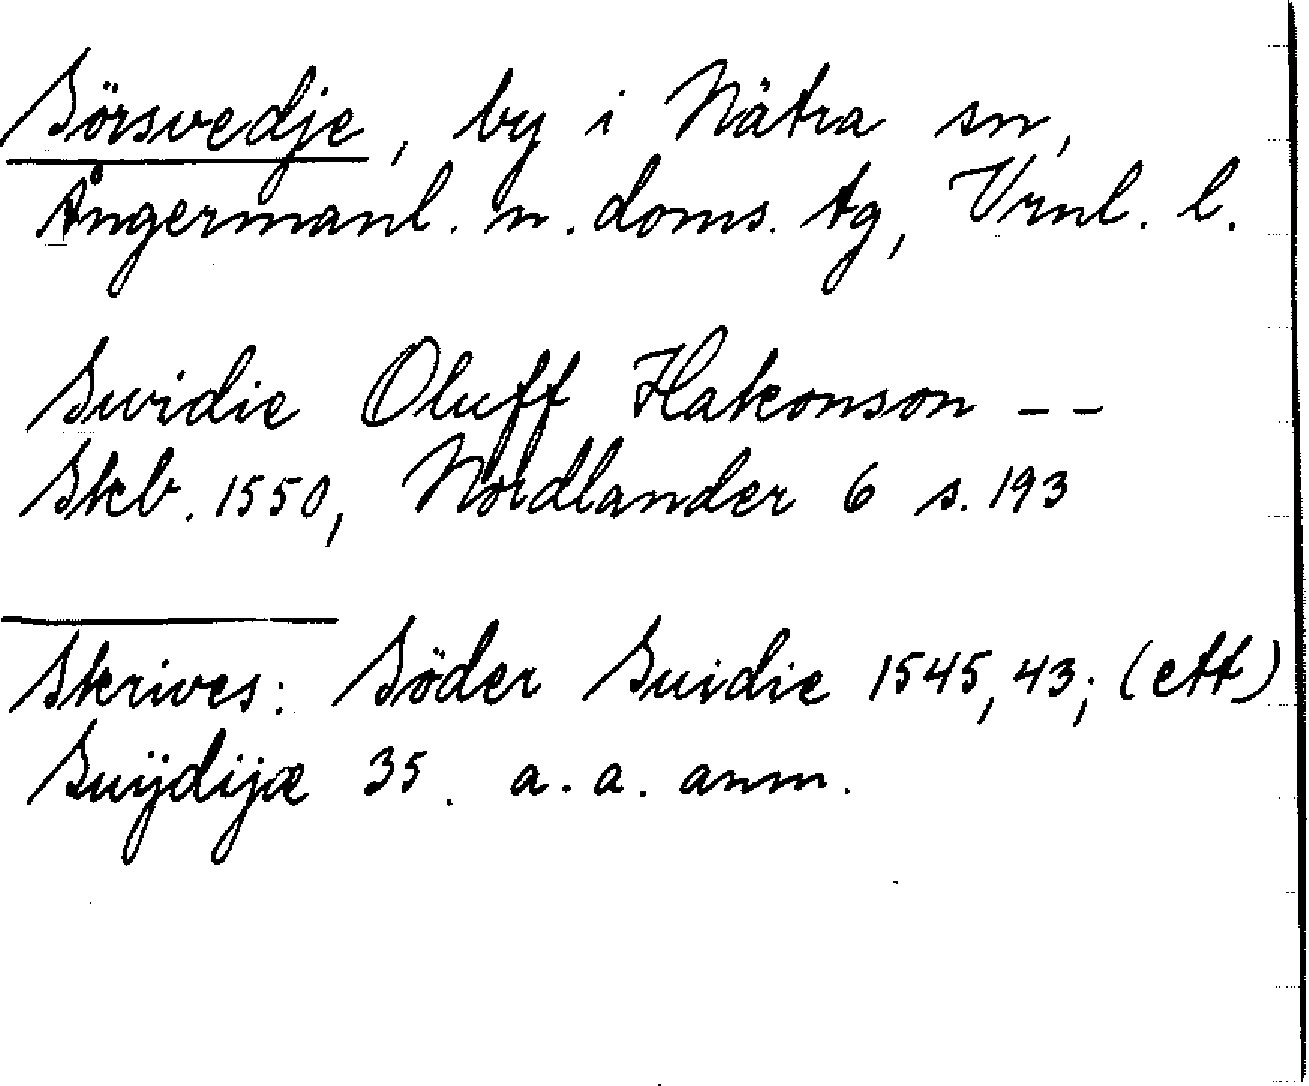 Sörsvedje, by i Nätra sn,
Ångermanl. n. doms. tg, Vrnl. l.
Suidie Oluff Hakonson – –
Skb. 1550, Nordlander 6 s. 193
Skrives: Söder Suidie 1545, 43; (ett)
Suÿdijæ 35. a. a. anm.